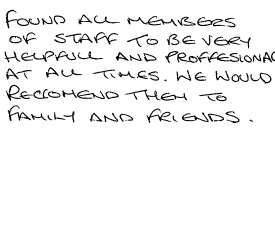 FOUND ALL MEMBERS
OF STAFF TO BE VERY
HELPFULL AND PROFFESIONAL
AT ALL TIMES. WE WOULD
RECCOMEND THEM TO
FAMILY AND FRIENDS.